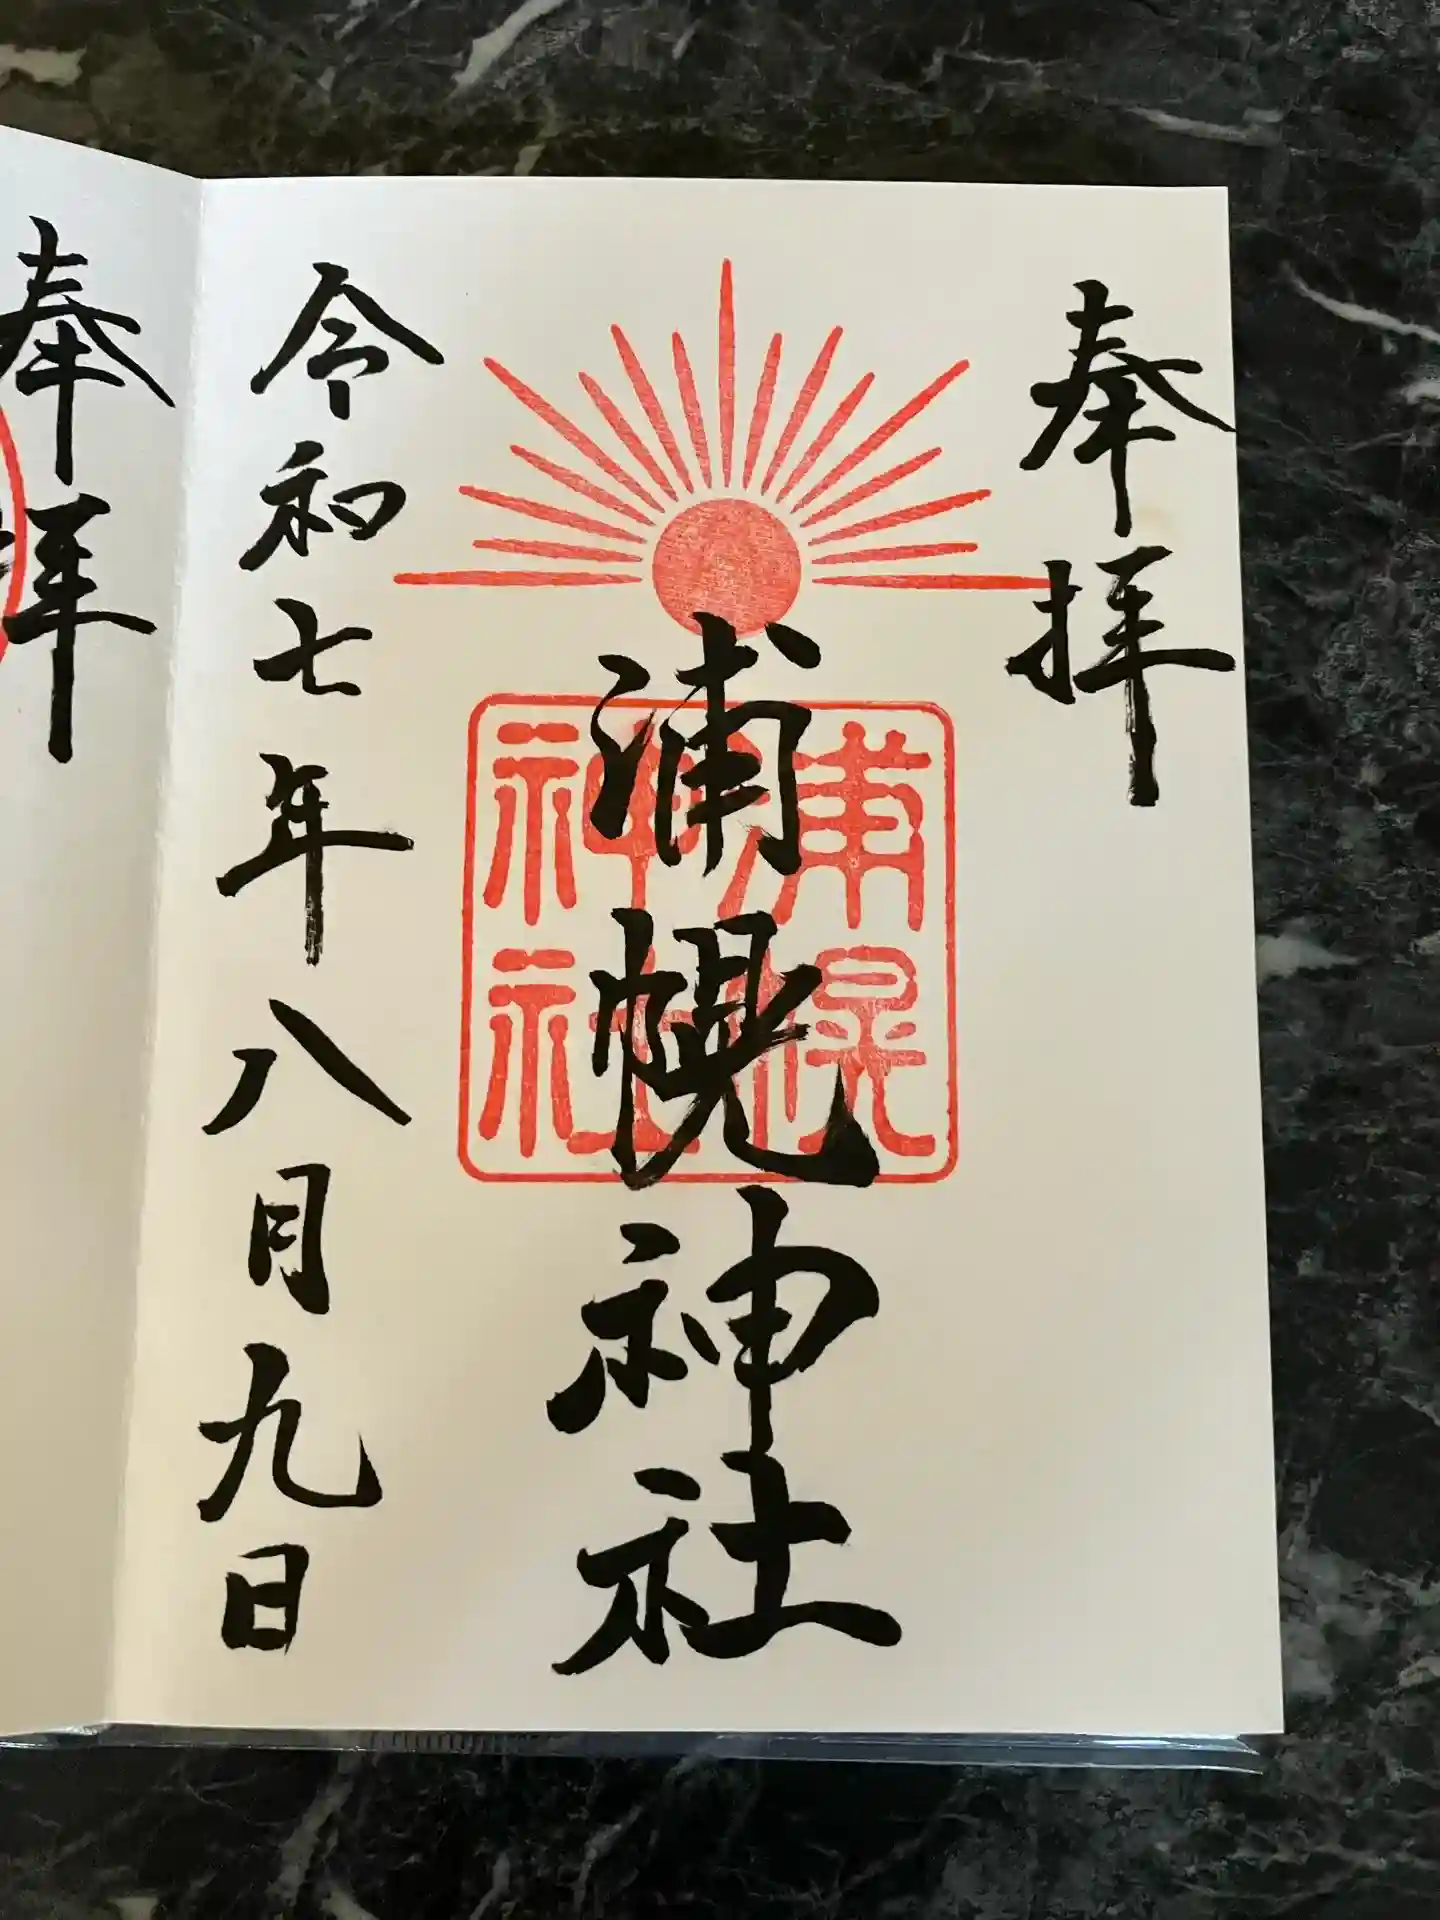 奉拝
浦幌神社
浦幌
神社
令和七年八月九日
奉拝